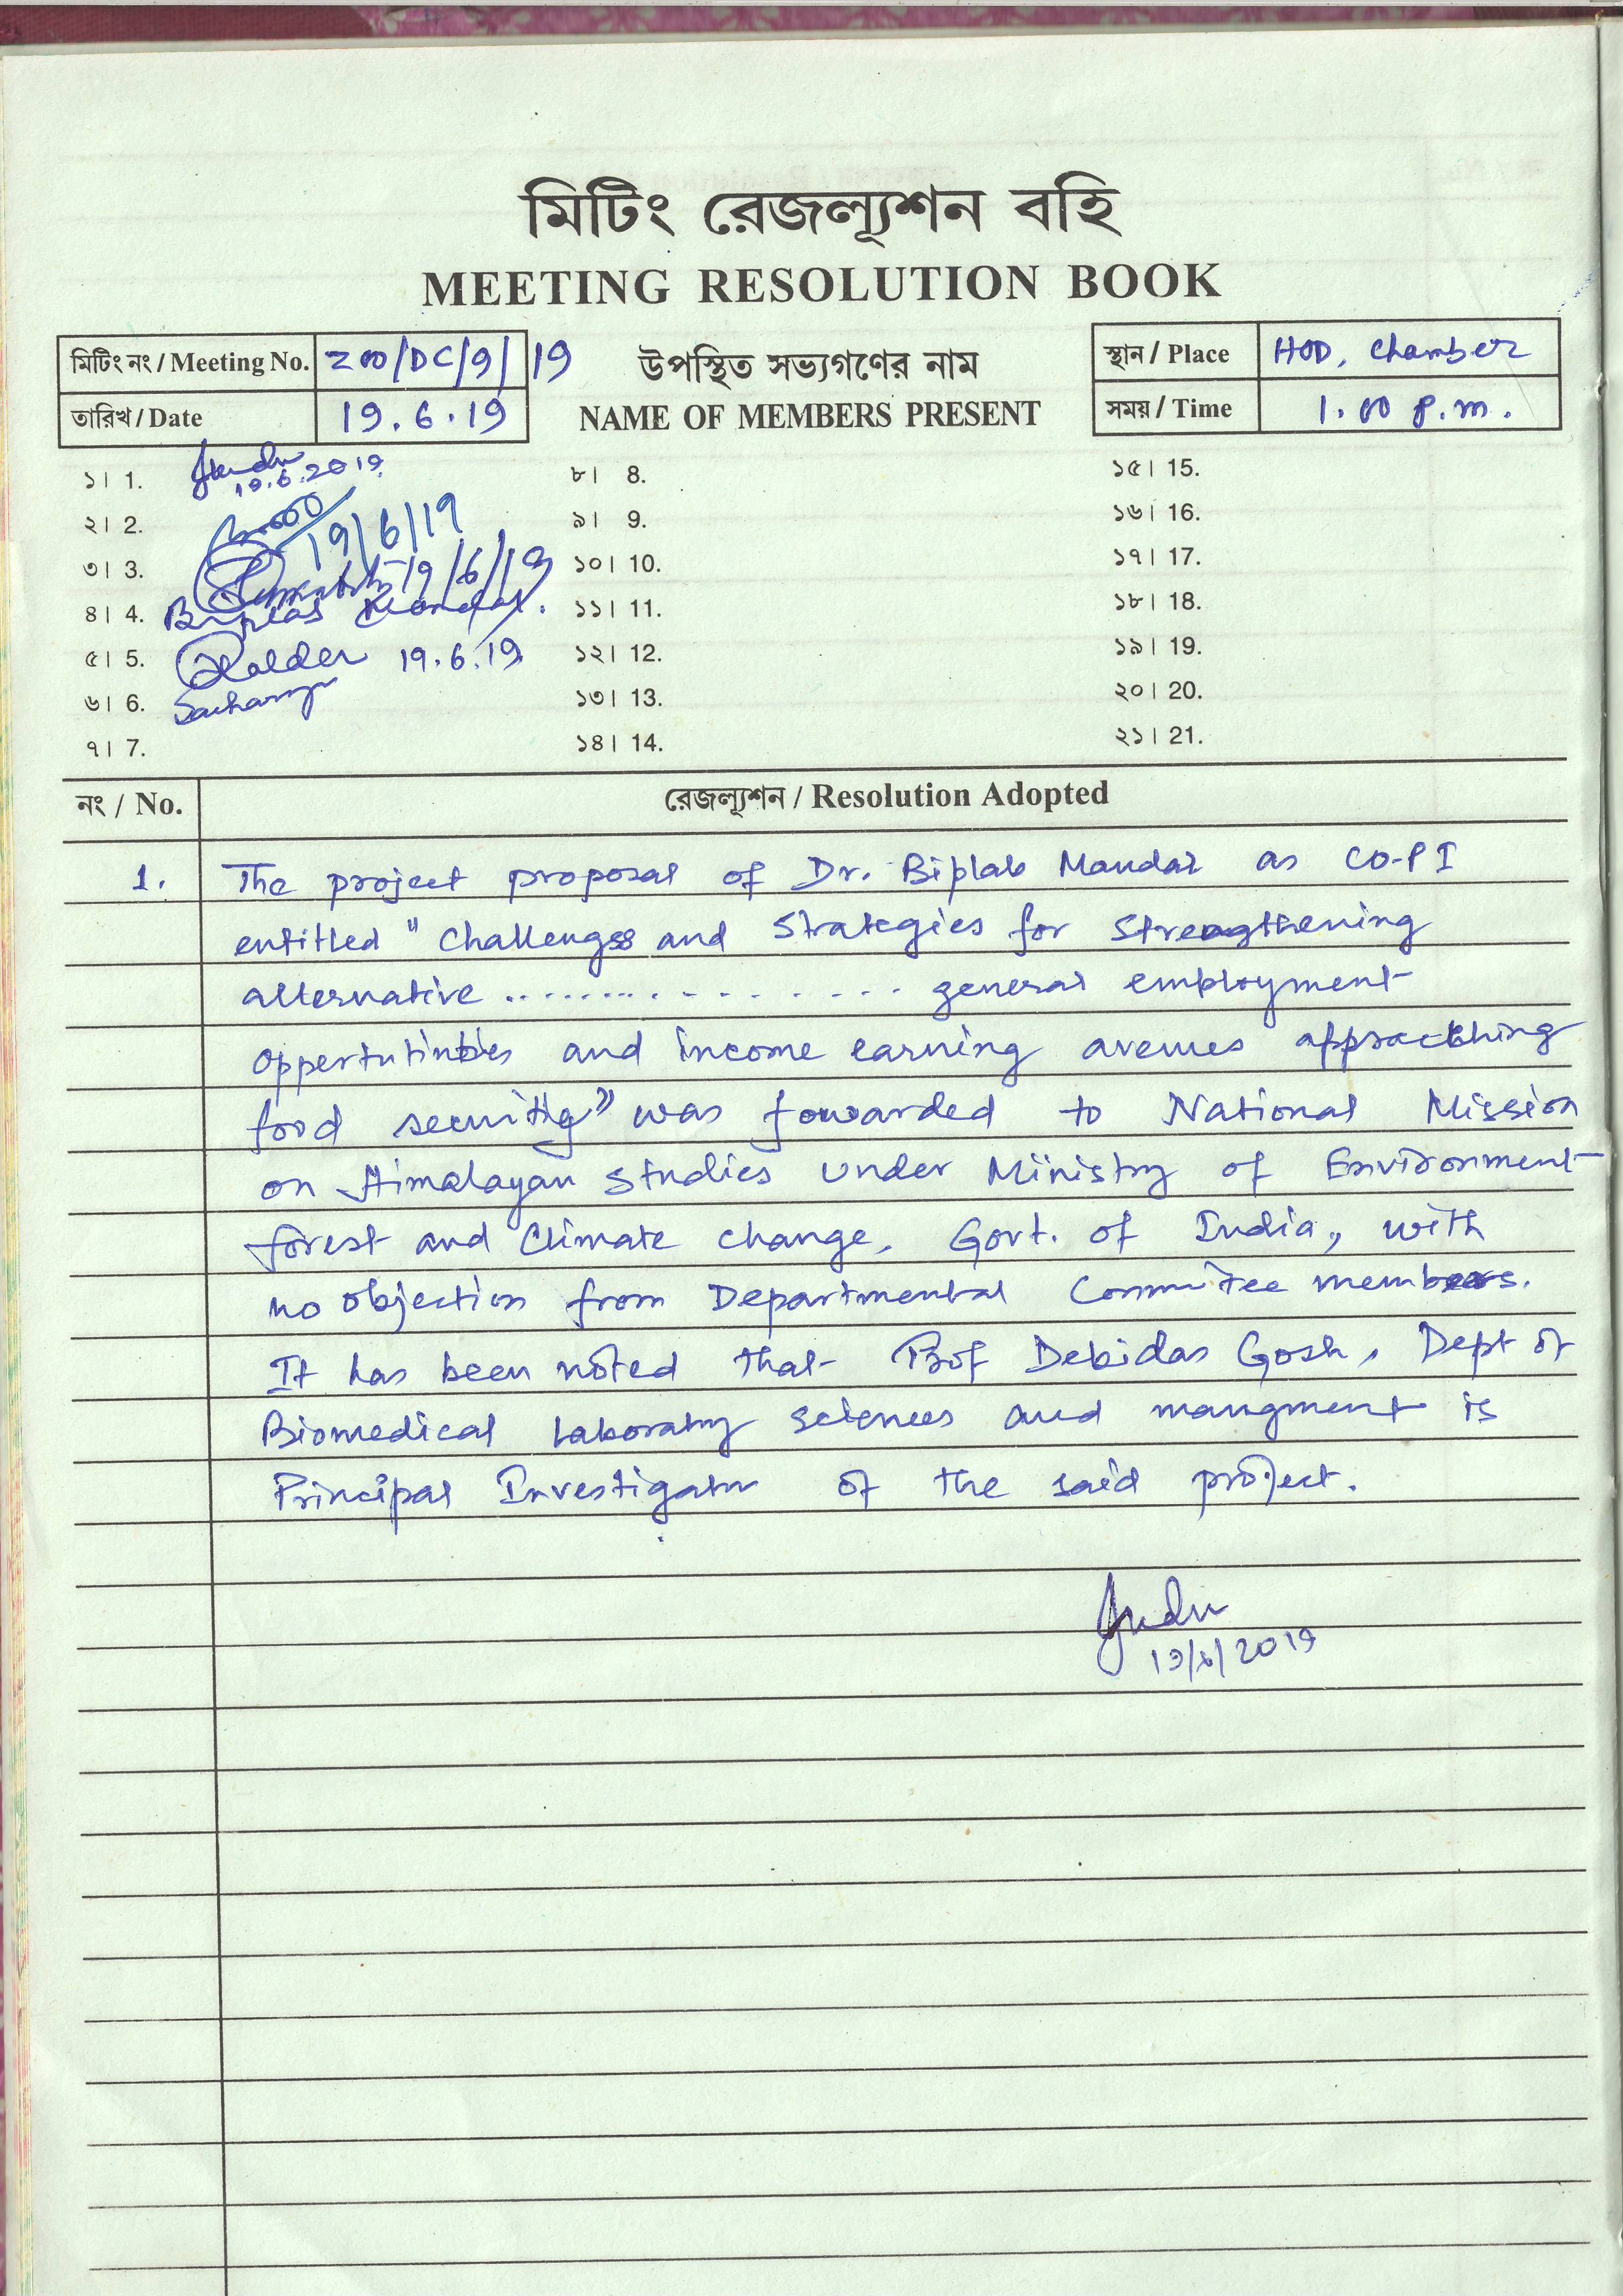 মিটিং রেজল্যূশন বহি
MEETING RESOLUTION BOOK
মিটিং নং / Meeting No. 200/DC/9/19
তারিখ / Date 19.6.19
উপস্থিত সভ্যগণের নাম
NAME OF MEMBERS PRESENT
স্থান / Place HOD, Chamber
সময় / Time 1.00 p.m.
১। 1. 19.6.2019
২। 2. 19/6/19
৩। 3. 19/6/19
৪। 4. Biplab
৫। 5. Halder 19.6.19
৬। 6.
৭। 7.
৮। 8.
৯। 9.
১০। 10.
১১। 11.
১২। 12.
১৩। 13.
১৪। 14.
১৫। 15.
১৬। 16.
১৭। 17.
১৮। 18.
১৯। 19.
২০। 20.
২১। 21.
নং / No. রেজল্যূশন / Resolution Adopted
1. The project proposal of Dr. Biplab Mandal as CO-PI
entitled "Challenges and Strategies for Strengthening
alternative .................. general employment
and income earning avenues
food security" was forwarded to National Mission
on Himalayan Studies under Ministry of Environment
forest and Climate change, Govt. of India, with
no objection from Departmental Commitee members.
It has been noted that Prof Debidas Gosh, Dept of
Biomedical Laboratry sciences and mangment is
Principal Investigator of the said project.
19/6/2019